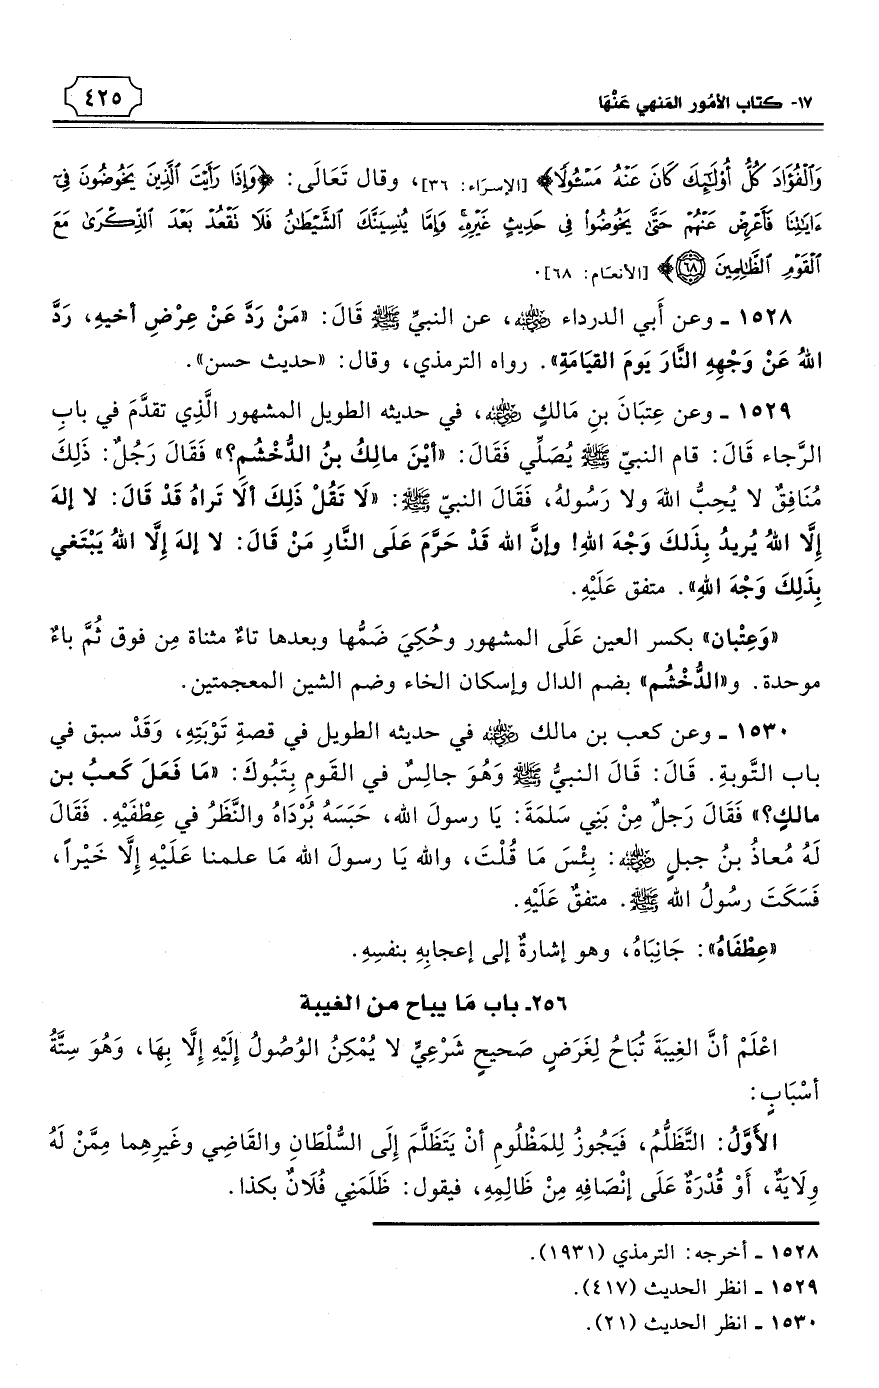 ١٧- كتاب الأمُور المَنهي عَنْهَا
٤٢٥
وَٱلْفُؤَادَ كُلُّ أُوْلَٰٓئِكَ كَانَ عَنْهُ مَسْـُٔولًا﴾ [الإسرَاء: ٣٦]، وقال تَعَالَى: ﴿وَإِذَا رَأَيْتَ ٱلَّذِينَ يَخُوضُونَ فِىٓ
ءَايَٰتِنَا فَأَعْرِضْ عَنْهُمْ حَتَّىٰ يَخُوضُوا۟ فِى حَدِيثٍ غَيْرِهِۦ وَإِمَّا يُنسِيَنَّكَ ٱلشَّيْطَٰنُ فَلَا تَقْعُدْ بَعْدَ ٱلذِّكْرَىٰ مَعَ
ٱلْقَوْمِ ٱلظَّٰلِمِينَ ۝٦٨﴾ [الأنعَام: ٦٨].
١٥٢٨ ـ وعن أَبي الدرداء رضي الله عنه، عن النبيِّ ﷺ قَالَ: «مَنْ رَدَّ عَنْ عِرْضِ أخيهِ، رَدَّ
اللهُ عَنْ وَجْهِهِ النَّارَ يَومَ القيَامَةِ». رواه الترمذي، وقال: «حديث حسن».
١٥٢٩ ـ وعن عِتبَانَ بنِ مَالكٍ رضي الله عنه، في حديثه الطويل المشهور الَّذِي تقدَّمَ في بابِ
الرَّجاء قَالَ: قام النبيّ ﷺ يُصَلِّي فَقَالَ: «أيْنَ مالِكُ بنُ الدُّخْشُمِ؟» فَقَالَ رَجُلٌ: ذَلِكَ
مُنَافِقٌ لا يُحِبُّ اللهَ ولا رَسُولهُ، فَقَالَ النبيّ ﷺ: «لَا تَقُلْ ذَلِكَ ألَا تَراهُ قَدْ قَالَ: لا إلهَ
إلَّا اللهُ يُريدُ بِذَلكَ وَجْهَ اللهِ! وإنَّ الله قَدْ حَرَّمَ عَلَى النَّارِ مَنْ قَالَ: لا إلهَ إلَّا اللهُ يَبْتَغي
بِذَلكَ وَجْهَ اللهِ». متفق عَلَيْهِ.
«وَعِتْبان» بكسر العين عَلَى المشهور وحُكِيَ ضَمُّها وبعدها تاءٌ مثناة مِن فوق ثُمَّ باءٌ
موحدة. و«الدُّخْشُم» بضم الدال وإسكان الخاء وضم الشين المعجمتين.
١٥٣٠ ـ وعن كعب بن مالك رضي الله عنه في حديثه الطويل في قصةِ تَوْبَتِهِ، وَقَدْ سبق في
باب التَّوبةِ. قَالَ: قَالَ النبيُّ ﷺ وَهُوَ جالِسٌ في القَومِ بِتَبُوكَ: «مَا فَعَلَ كَعبُ بن
مالكٍ؟» فَقَالَ رَجلٌ مِنْ بَنِي سَلمَةَ: يَا رسولَ الله، حَبَسَهُ بُرْدَاهُ والنَّظَرُ في عِطْفَيْهِ. فَقَالَ
لَهُ مُعاذُ بنُ جبلٍ رضي الله عنه: بِئْسَ مَا قُلْتَ، والله يَا رسولَ الله مَا علمنا عَلَيْهِ إلَّا خَيْراً،
فَسَكَتَ رسُولُ الله ﷺ. متفقٌ عَلَيْهِ.
«عِطْفَاهُ»: جَانِبَاهُ، وهو إشارةٌ إلى إعجابِهِ بنفسِهِ.
٢٥٦ـ باب مَا يباح من الغيبة
اعْلَمْ أنَّ الغِيبَةَ تُبَاحُ لِغَرَضٍ صَحيحٍ شَرْعِيٍّ لا يُمْكِنُ الوُصُولُ إِلَيْهِ إلَّا بِهَا، وَهُوَ سِتَّةُ
أسْبَابٍ:
الأَوَّلُ: التَّظَلُّمُ، فَيَجُوزُ لِلمَظْلُومِ أنْ يَتَظَلَّمَ إِلَى السُّلْطَانِ والقَاضِي وغَيرِهِما مِمَّنْ لَهُ
وِلَايَةٌ، أوْ قُدْرَةٌ عَلَى إنْصَافِهِ مِنْ ظَالِمِهِ، فيقول: ظَلَمَنِي فُلَانٌ بكذا.
١٥٢٨ ـ أخرجه: الترمذي (١٩٣١).
١٥٢٩ ـ انظر الحديث (٤١٧).
١٥٣٠ ـ انظر الحديث (٢١).